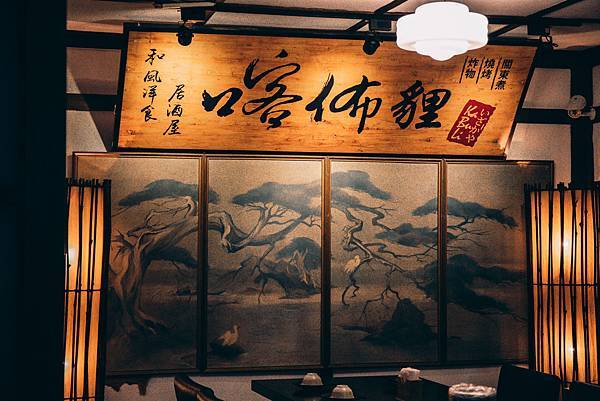 和風洋食
居酒屋
喀佈貍
關東煮
燒烤
炸物
いざかや
KaBuLi